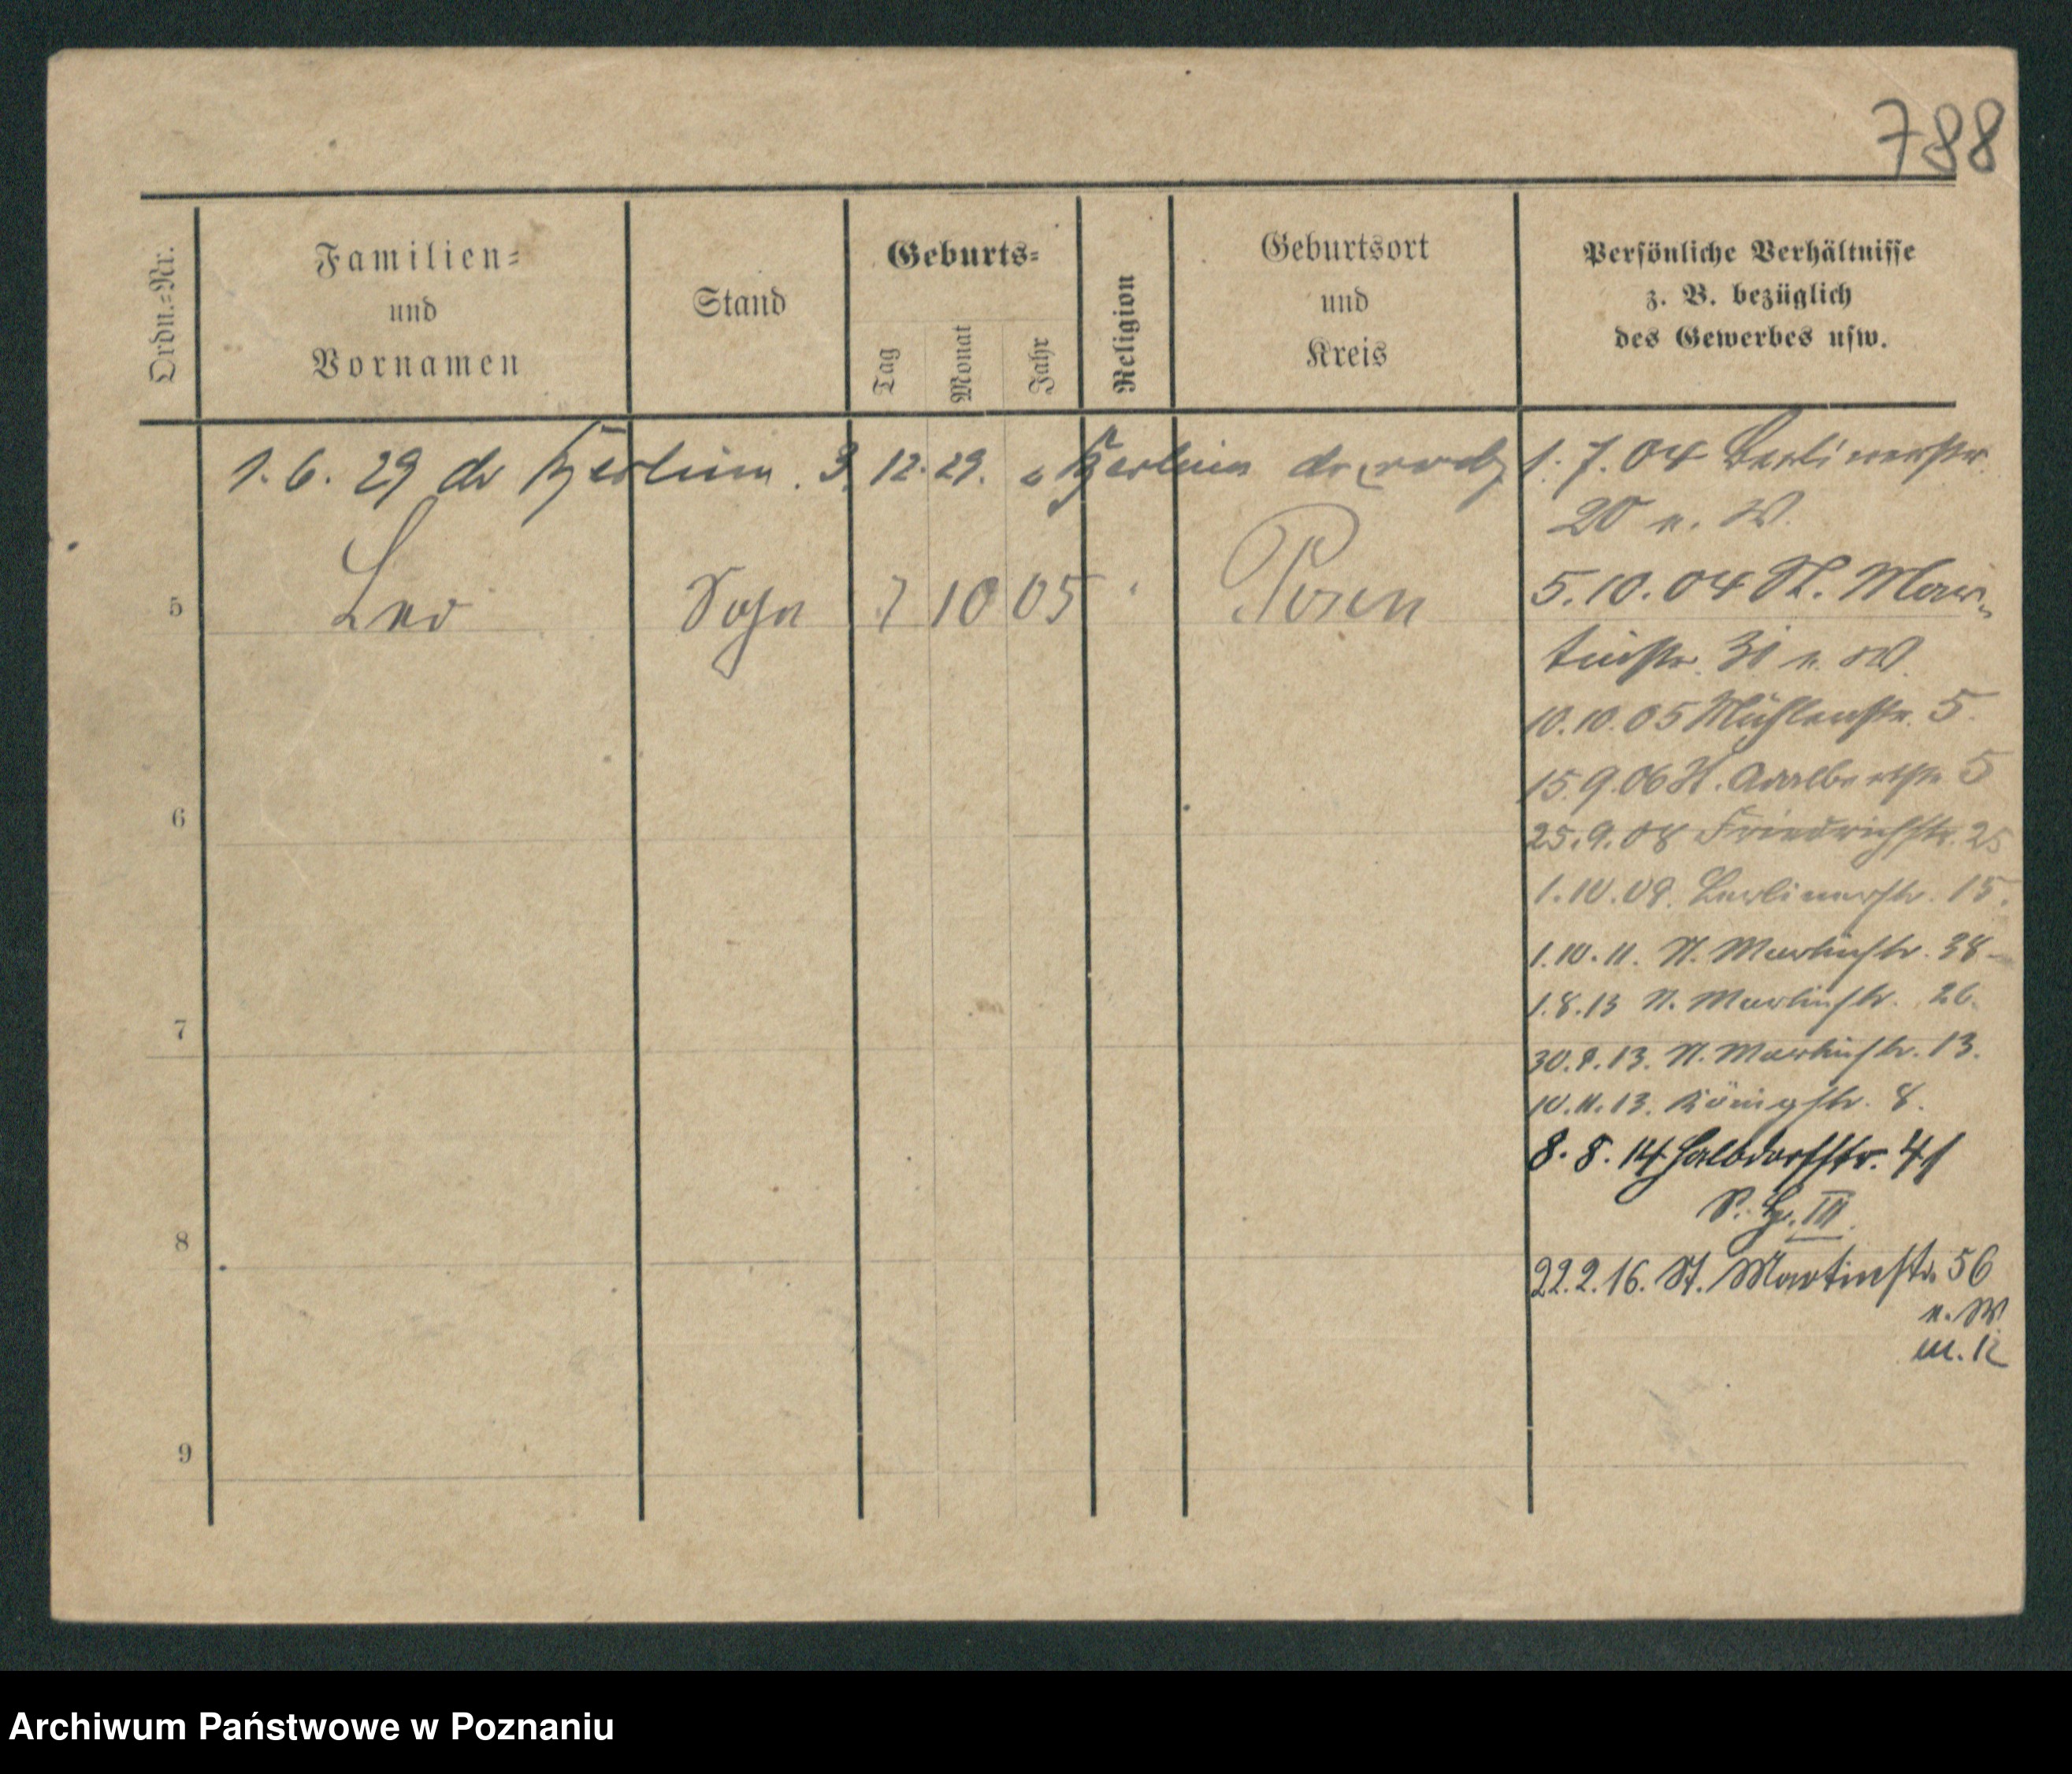 788
Ordn.=Nr.
Familien=
und
Vornamen
Stand
Geburts=
Tag
Monat
Jahr
Religion
Geburtsort
und
Kreis
Persönliche Verhältnisse
z. B. bezüglich
des Gewerbes usw.
1. 6. 29 do Berlina. 3. 12. 29. z Berlina do
5 Leo Sohn 7 10 05 Posen
6
7
8
9
1. 7. 04 Berlinerstr.
20 n. W.
5. 10. 04 St. Mar-
tinstr. 31 n. W.
10. 10. 05 Mühlenstr. 5.
15. 9. 06 St. Adalbertstr. 5
25. 9. 08 Friedrichstr. 25
1. 10. 09. Berlinerstr. 15.
1. 10. 11. St. Martinstr. 38
1. 8. 13 St. Martinstr. 26.
30. 9. 13. St. Martinstr. 13.
10. 11. 13. Königstr. 8.
8. 8. 14 Halbdorfstr. 41
III
22. 2. 16. St. Martinstr. 56
n. W.
m. K
Archiwum Państwowe w Poznaniu